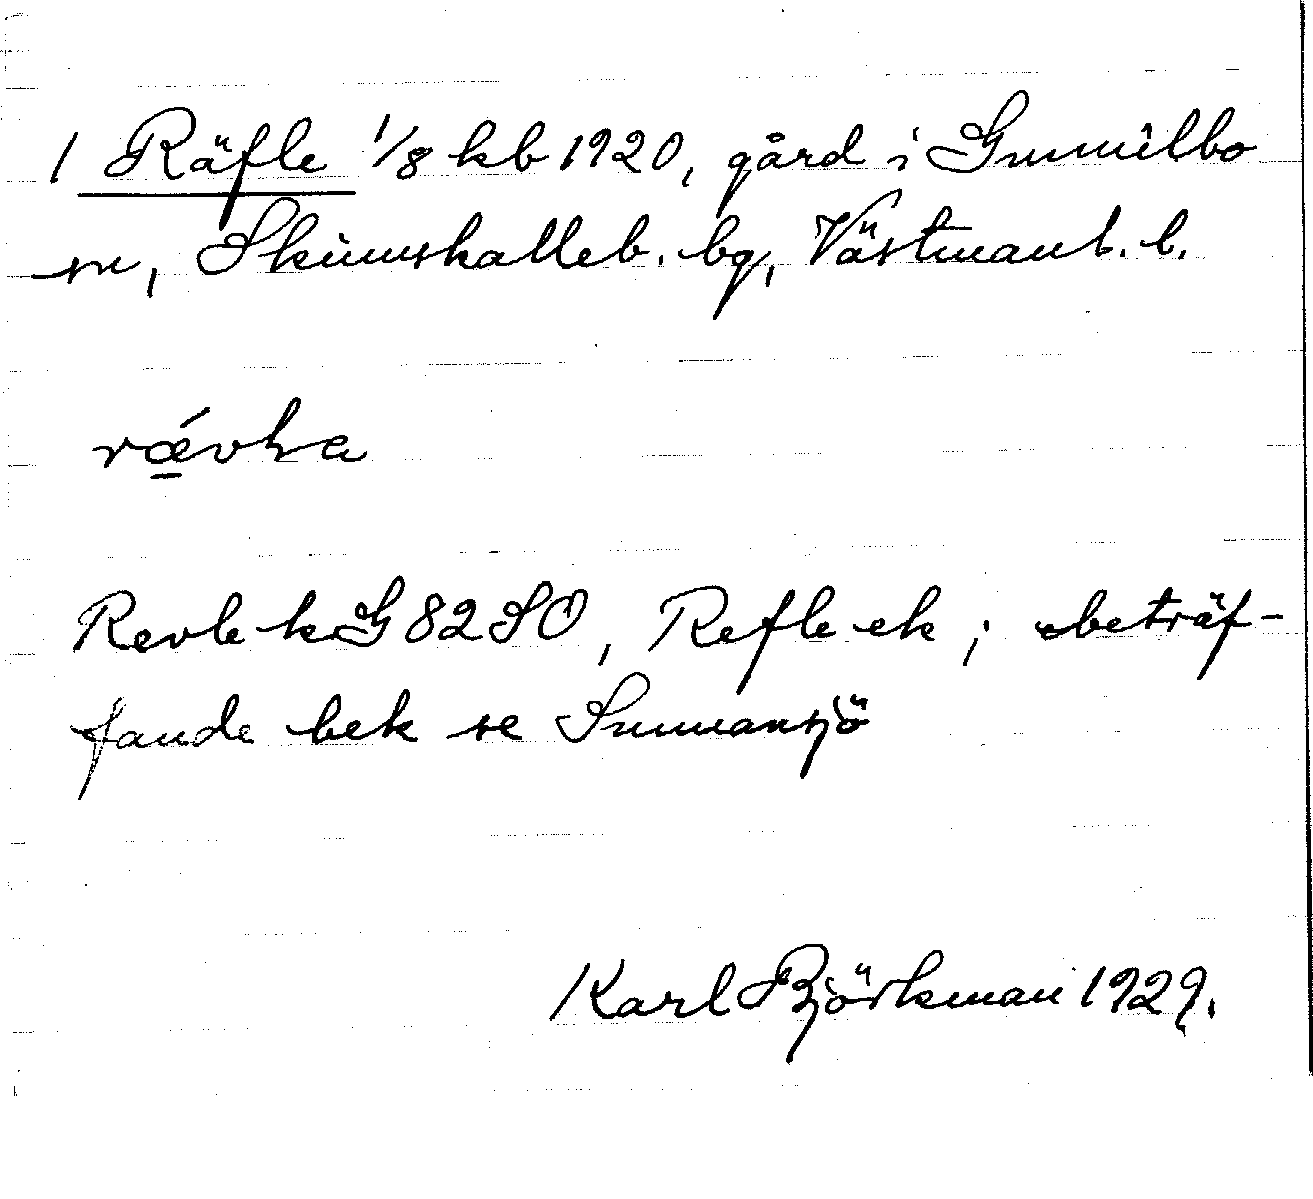 1 Räfle 1/8 kb 1920, gård i Gunnilbo
sn, Skinnskatteb. bg, Västmanl. l.
rǽvla
Revle kG 82 SO, Refle ek; beträf-
fande bek se Sunnansjö
Karl Björkman 1929.